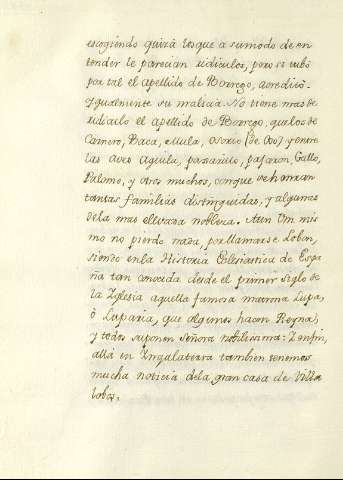 escogiendo quizà los que a su modo de en
tender le parecian ridiculos, pero si tubo
por tal el apellido de Borrego, acredito
Igualmente su malicia. No tiene mas de
ridiculo el apellido de Borrego, que los de
Carnero, Baca, Mula, Osorio (de Oso) y entre
las aves Aguila, paxarito, pajaron, Gallo,
Palomo, y otros muchos, con que se honran
tantas familias distinguidas, y algunas
de la mas elevada nobleza. Aun Um mis
mo no pierde nada, por llamarse Lobon,
siendo en la Historia Eclesiastica de Espa
ña tan conocida desde el primer siglo de
la Iglesia aquella famosa matrona Lupa,
ò Luparia, que algunos hacen Reyna,
y todos suponen Señora nobilissima: Y en fin,
allà en Ingalaterra tambien tenemos
mucha noticia de la gran casa de Villa
lobos,